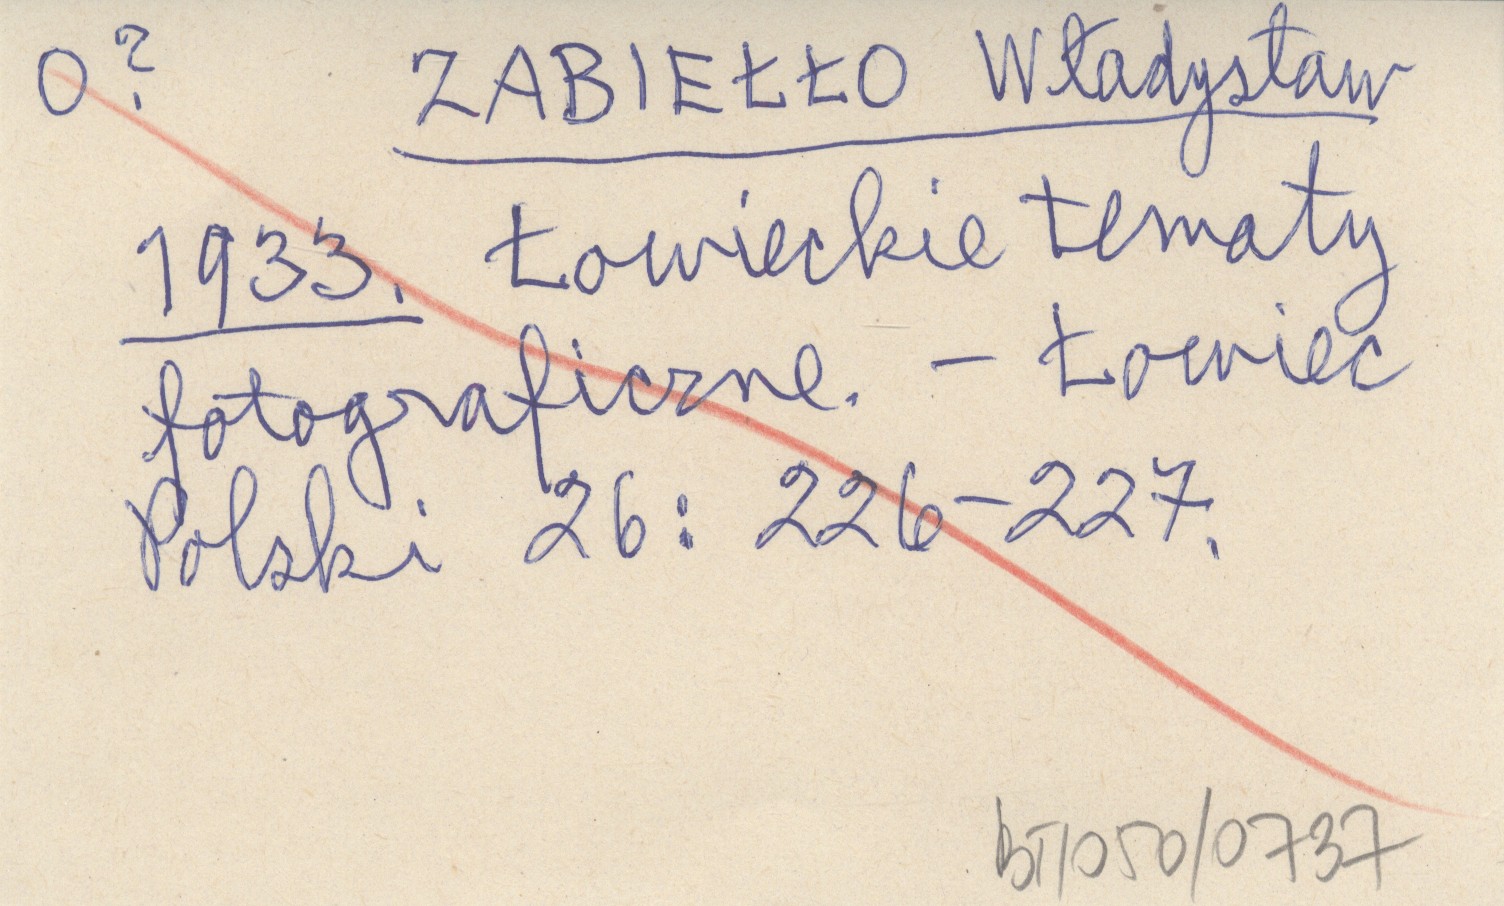 O? ZABIEŁŁO Władysław
1933. Łowieckie tematy
fotograficzne. – Łowiec
Polski 26: 226–227.
BT/050/0737